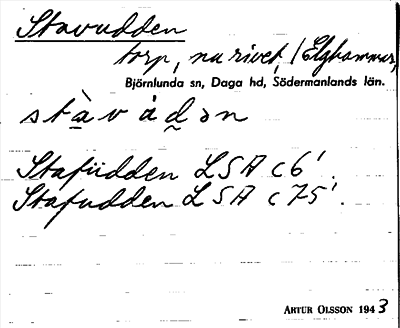 Stavudden
torp, nu rivet, /Elghammar,
Björnlunda sn, Daga hd, Södermanlands län.
stàvȧdən
Stafüdden LSA c6'.
Stafudden LSA c75'.
ARTUR OLSSON 1943